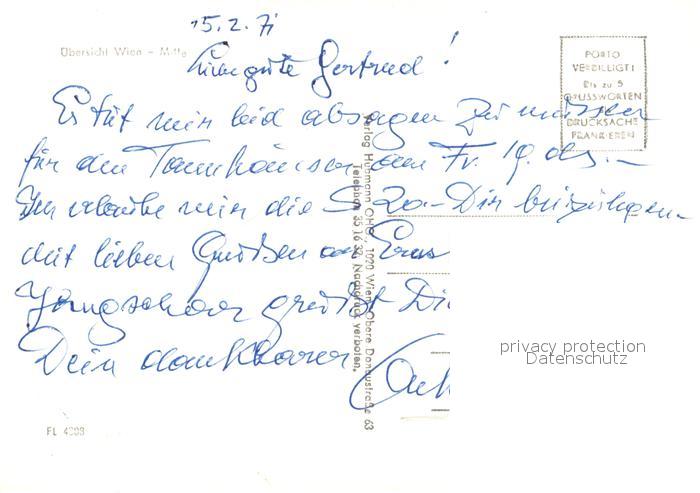 15.2.71
Übersicht Wien - Mitte
Liebe gute Gertrud!
PORTO
VERBILLIGT!
Bis zu 5
GRUSSWORTEN
DRUCKSACHE
FRANKIEREN
Es tut mir leid absagen zu müssen
für den Tannhäuser am Fr. 19. ds. -
erlaube mir die S 20.- Dir beizulegen -
mit lieben Grüßen an
grüßt Di
Dein dankbarer
Verlag Hubmann OHG., 1020 Wien, Obere Donaustraße 63
Telephon 35 16 32, Nachdruck verboten.
privacy protection
Datenschutz
FL 4003